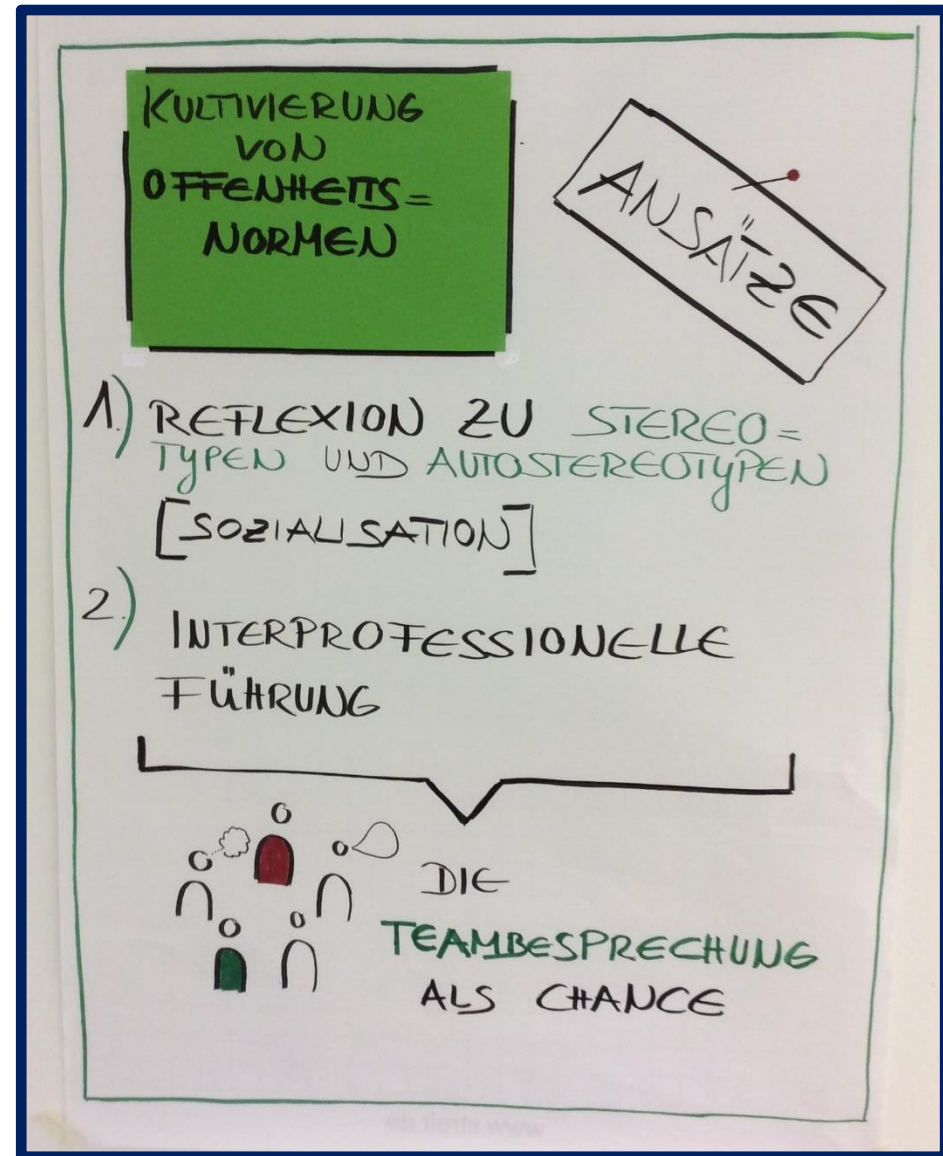 KULTIVIERUNG
VON
OFFENHEITS=
NORMEN
ANSÄTZE
1.) REFLEXION ZU STEREO=
TYPEN UND AUTOSTEREOTYPEN
[SOZIALISATION]
2.) INTERPROFESSIONELLE
FÜHRUNG
DIE
TEAMBESPRECHUNG
ALS CHANCE
www.streit.de